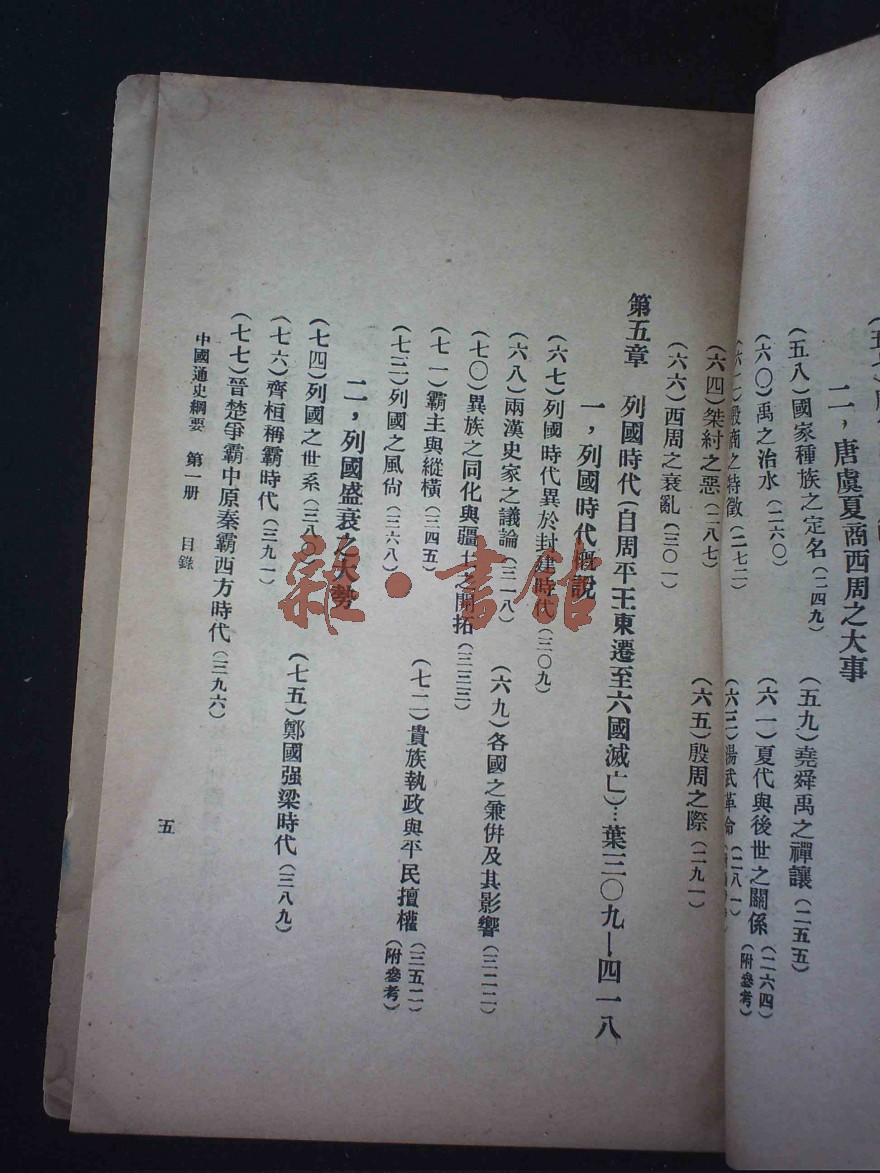 二，唐虞夏商西周之大事
（五八）國家種族之定名（二四九）
（五九）堯舜禹之禪讓（二五五）
（六〇）禹之治水（二六〇）
（六一）夏代與後世之關係（二六四）（附參考）
殷商之特徵（二七二）
（六三）湯武革命（二八一）
（六四）桀紂之惡（二八七）
（六五）殷周之際（二九一）
（六六）西周之衰亂（三〇一）
第五章　列國時代（自周平王東遷至六國滅亡）…葉三〇九—四一八
一，列國時代概說
（六七）列國時代異於封建時代（三〇九）
（六八）兩漢史家之議論（三一八）
（六九）各國之兼併及其影響（三二二）
（七〇）異族之同化與疆土之開拓（三三三）
（七一）霸主與縱橫（三四五）
（七二）貴族執政與平民擅權（三五二）（附參考）
（七三）列國之風尙（三六八）
二，列國盛衰之大勢
（七四）列國之世系（三八
（七五）鄭國强梁時代（三八九）
（七六）齊桓稱霸時代（三九一）
（七七）晉楚爭霸中原秦霸西方時代（三九六）
中國通史綱要　第一册　目錄
五
雜·書館